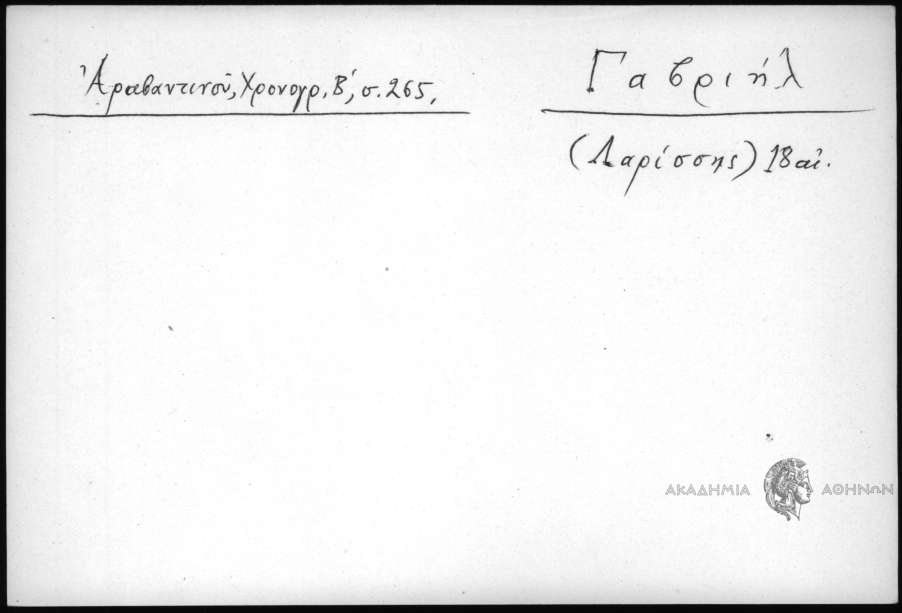 Ἀραβαντινοῦ, Χρονογρ. Β΄, σ. 265.
Γαβριήλ
(Λαρίσσης) 18 αἰ.
ΑΚΑΔΗΜΙΑ ΑΘΗΝΩΝ